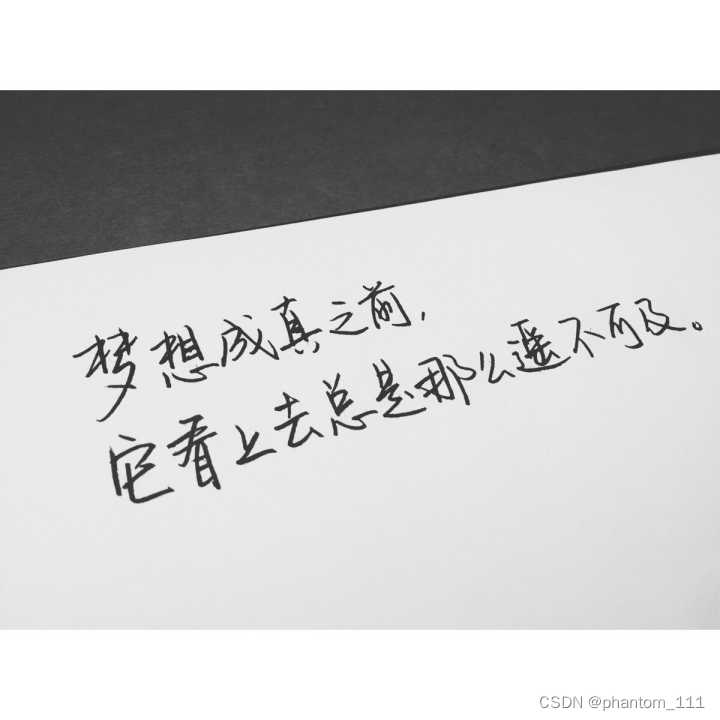 梦想成真之前，
它看上去总是那么遥不可及。
CSDN @phantom_111